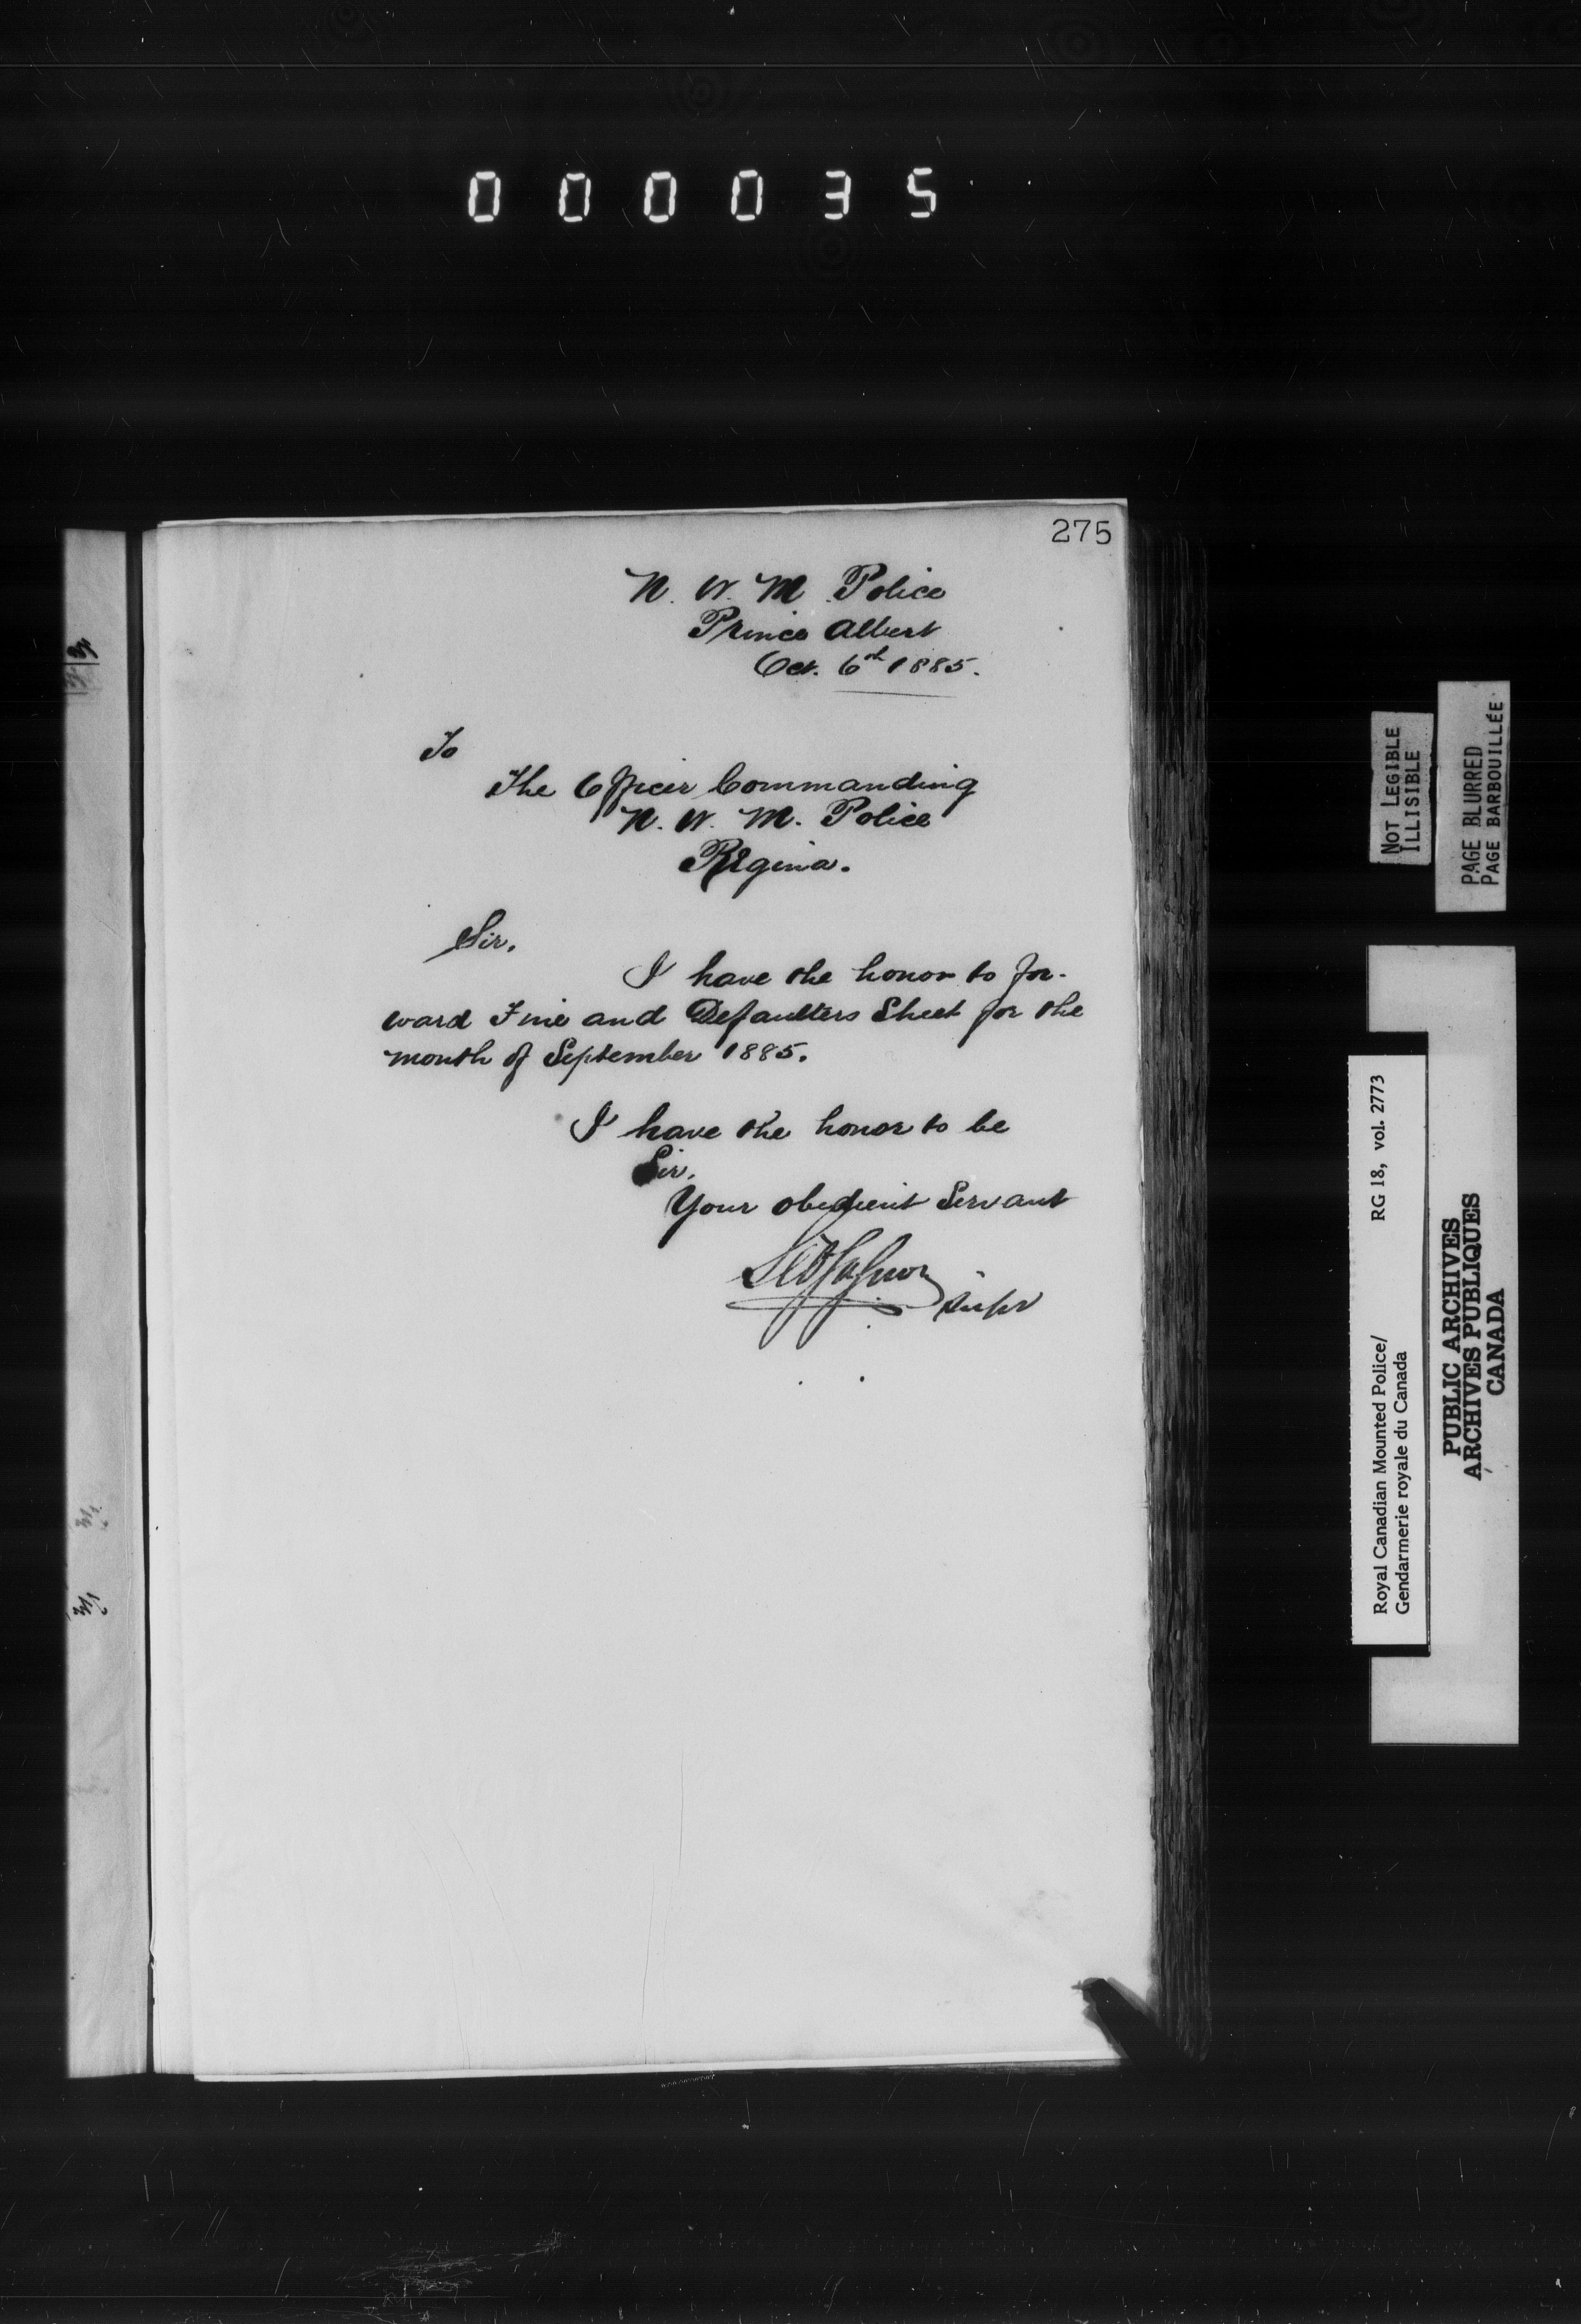 000035
275
N. W. M. Police
Prince Albert
Oct. 6th 1885.
To
The Officer Commanding
N. W. M. Police
Regina.
Sir,
I have the honor to for-
ward Fine and Defaulters Sheet for the
month of September 1885.
I have the honor to be
Sir,
Your obedient Servant
Supt
NOT LEGIBLE
ILLISIBLE
PAGE BLURRED
PAGE BARBOUILLÉE
Royal Canadian Mounted Police/ RG 18, vol. 2773
Gendarmerie royale du Canada
PUBLIC ARCHIVES
ARCHIVES PUBLIQUES
CANADA